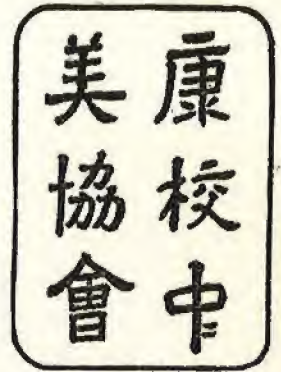 康校中
美協會